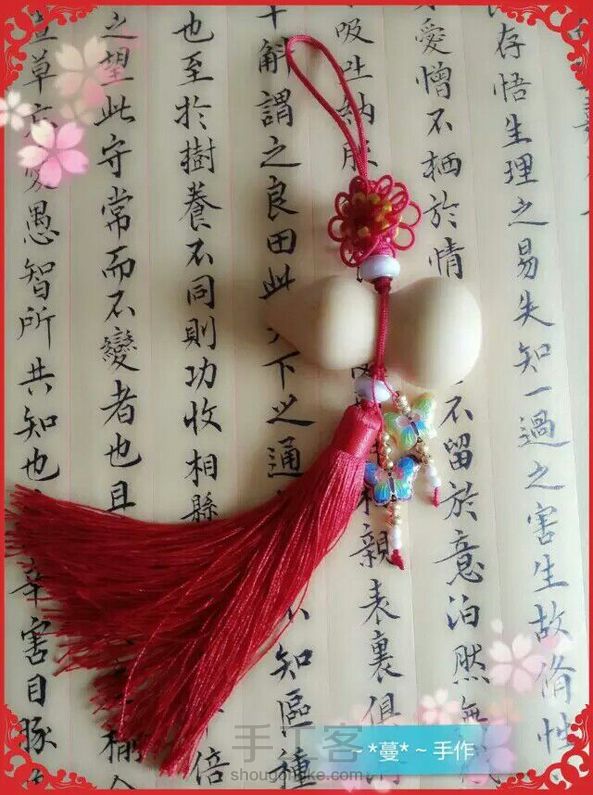 存悟生理之易失知一過之害生故脩性
愛憎不栖於情 不留於意泊然無
吸吐納服 相親表裏俱
斛謂之良田此 下之通 不知區種
也至於樹養不同則功收相縣 倍
之望此守常而不變者也且
草忘 愚智所共知也 辛害目豚
手工客
shougongke.com
~*蔓*~手作